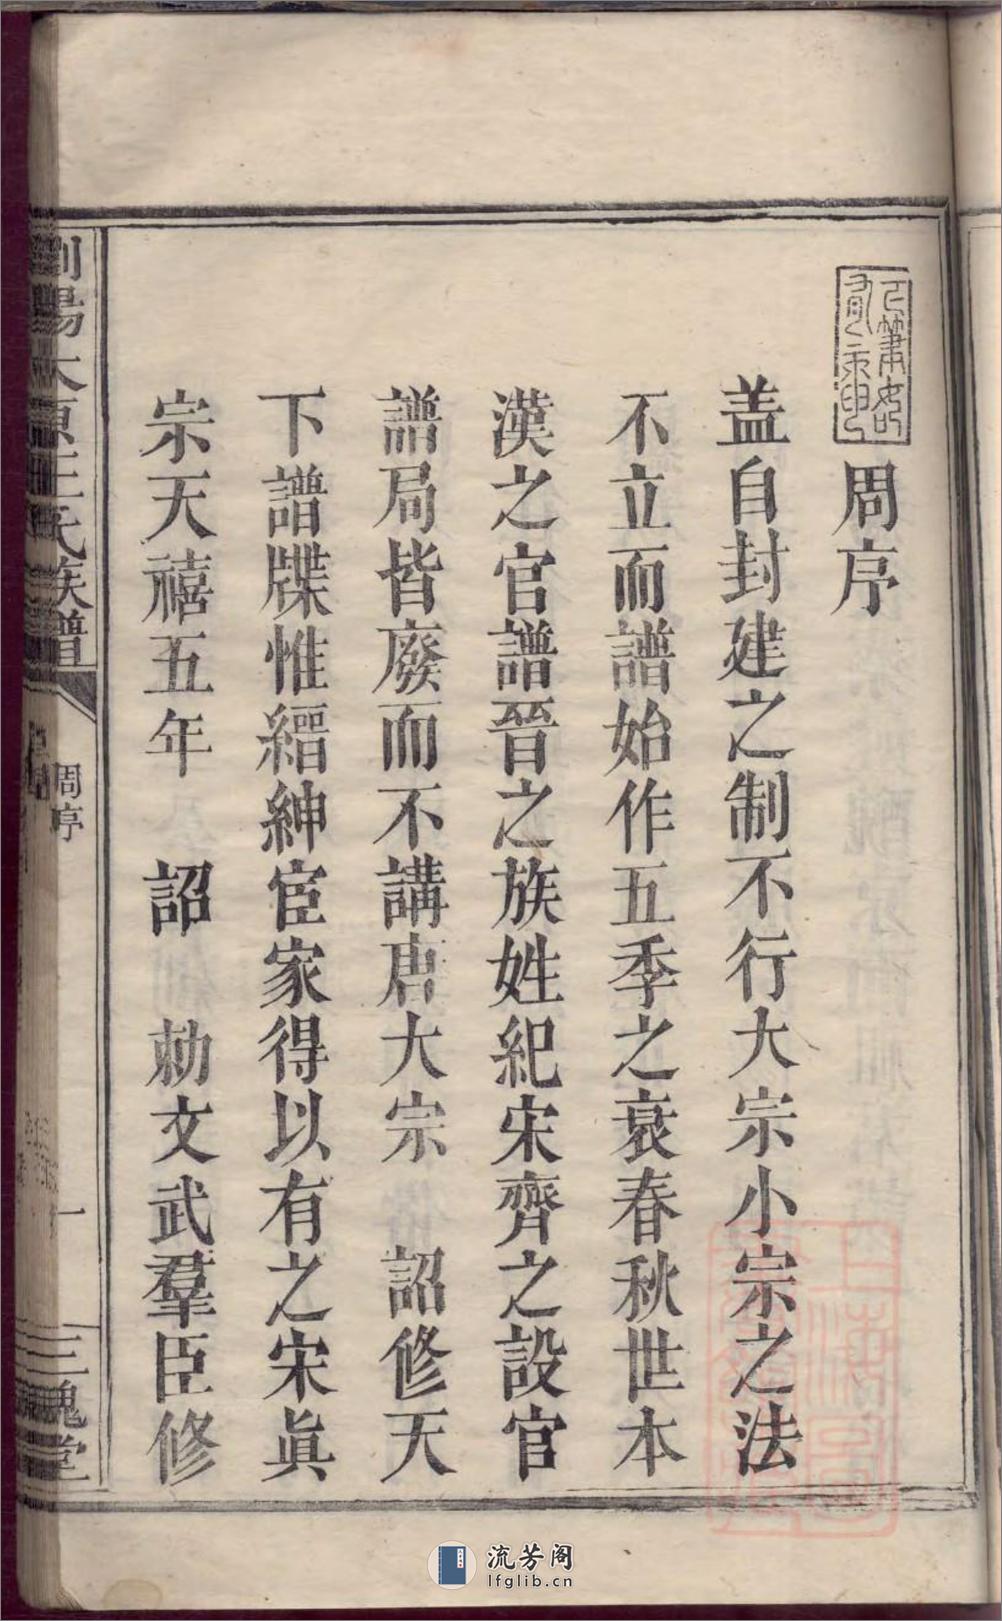 周序
盖自封建之制不行大宗小宗之法
不立而譜始作五季之衰春秋世本
漢之官譜晉之族姓紀宋齊之設官
譜局皆廢而不講唐大宗　詔修天
下譜牒惟縉紳宦家得以有之宋眞
宗天禧五年　詔　勅文武羣臣修
瀏陽太原王氏族譜
周序
一
三槐堂
流芳阁
lfglib.cn